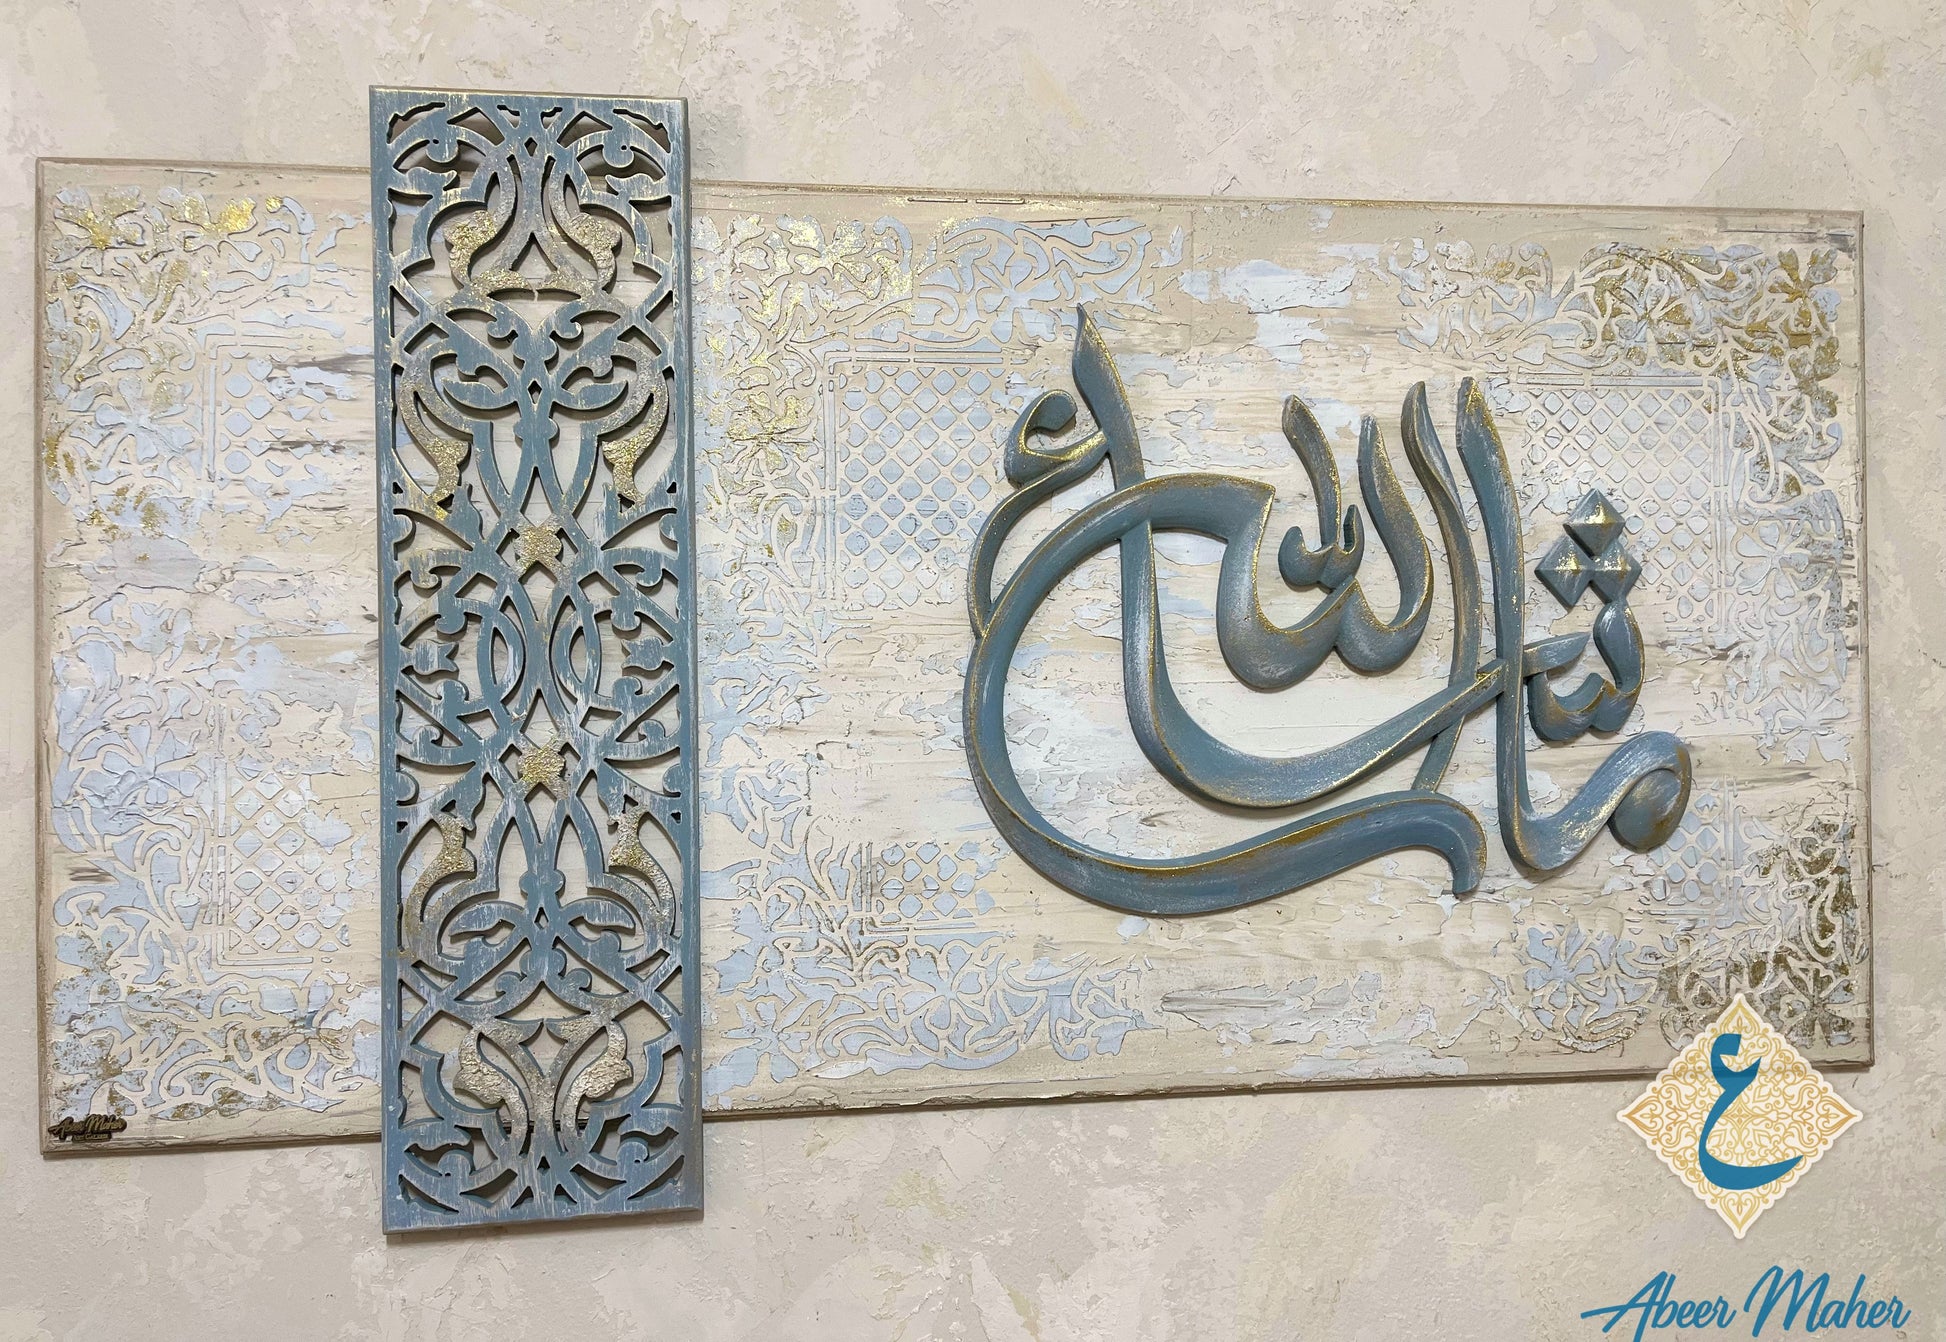 ما شاء الله
Abeer Maher
Art Gallery
ع
Abeer Maher